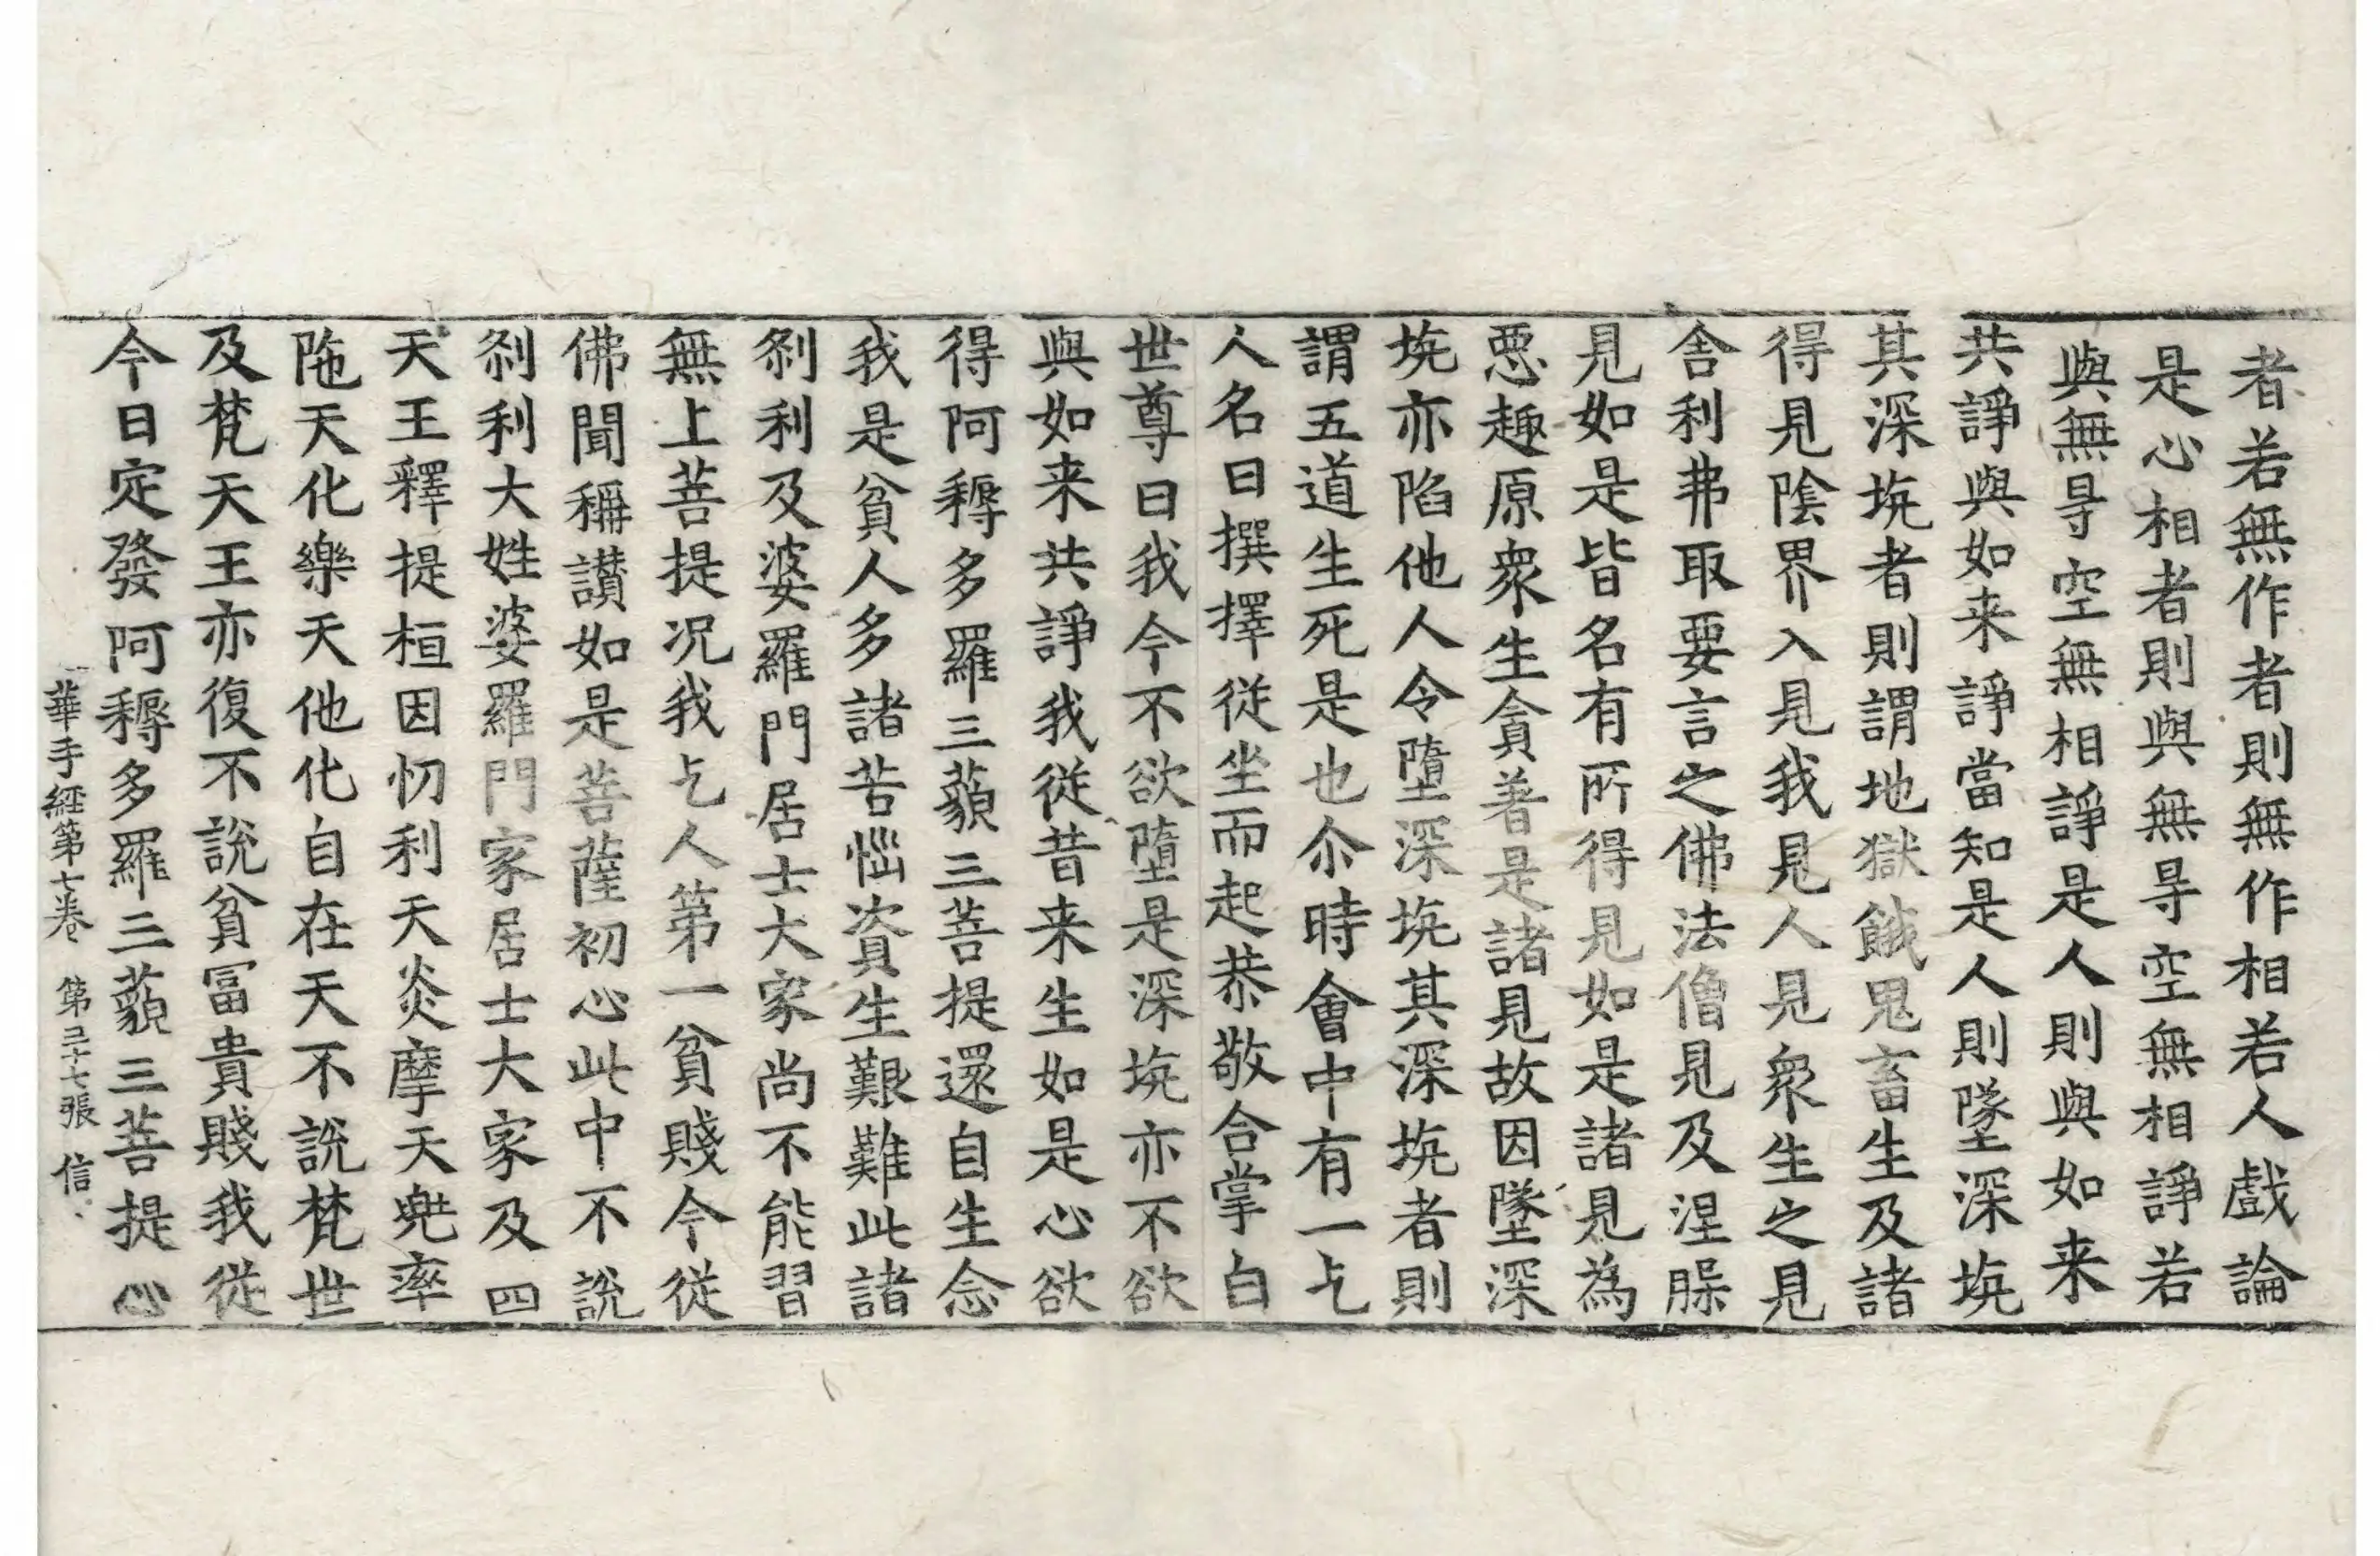 者若無作者則無作相若人戲論
是心相者則與無㝵空無相諍若
與無㝵空無相諍是人則與如来
共諍與如来諍當知是人則墜深坑
其深坑者則謂地獄餓鬼畜生及諸
得見陰界入見我見人見衆生之見
舎利弗取要言之佛法僧見及涅䏶
見如是皆名有所得見如是諸見為
惡趣原衆生貪著是諸見故因墜深
坑亦陷他人令墮深坑其深坑者則
謂五道生死是也尒時會中有一乞
人名曰撰擇従坐而起恭敬合掌白
世尊曰我今不欲墮是深坑亦不欲
與如来共諍我従昔来生如是心欲
得阿耨多羅三藐三菩提還自生念
我是貧人多諸苦惱資生艱難此諸
刹利及婆羅門居士大家尚不能習
無上菩提況我乞人第一貧賤今従
佛聞稱讃如是菩薩初心此中不說
刹利大姓婆羅門家居士大家及四
天王釋提桓因忉利天炎摩天兜率
陁天化樂天他化自在天不說梵世
及梵天王亦復不說貧冨貴賤我従
今日定發阿耨多羅三藐三菩提心
華手經第七卷 第三十七張 信